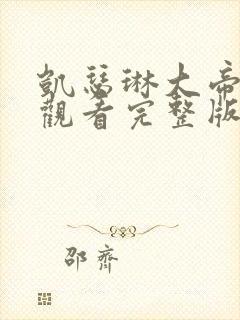 凱瑟琳大帝
觀看完整版
邵齊